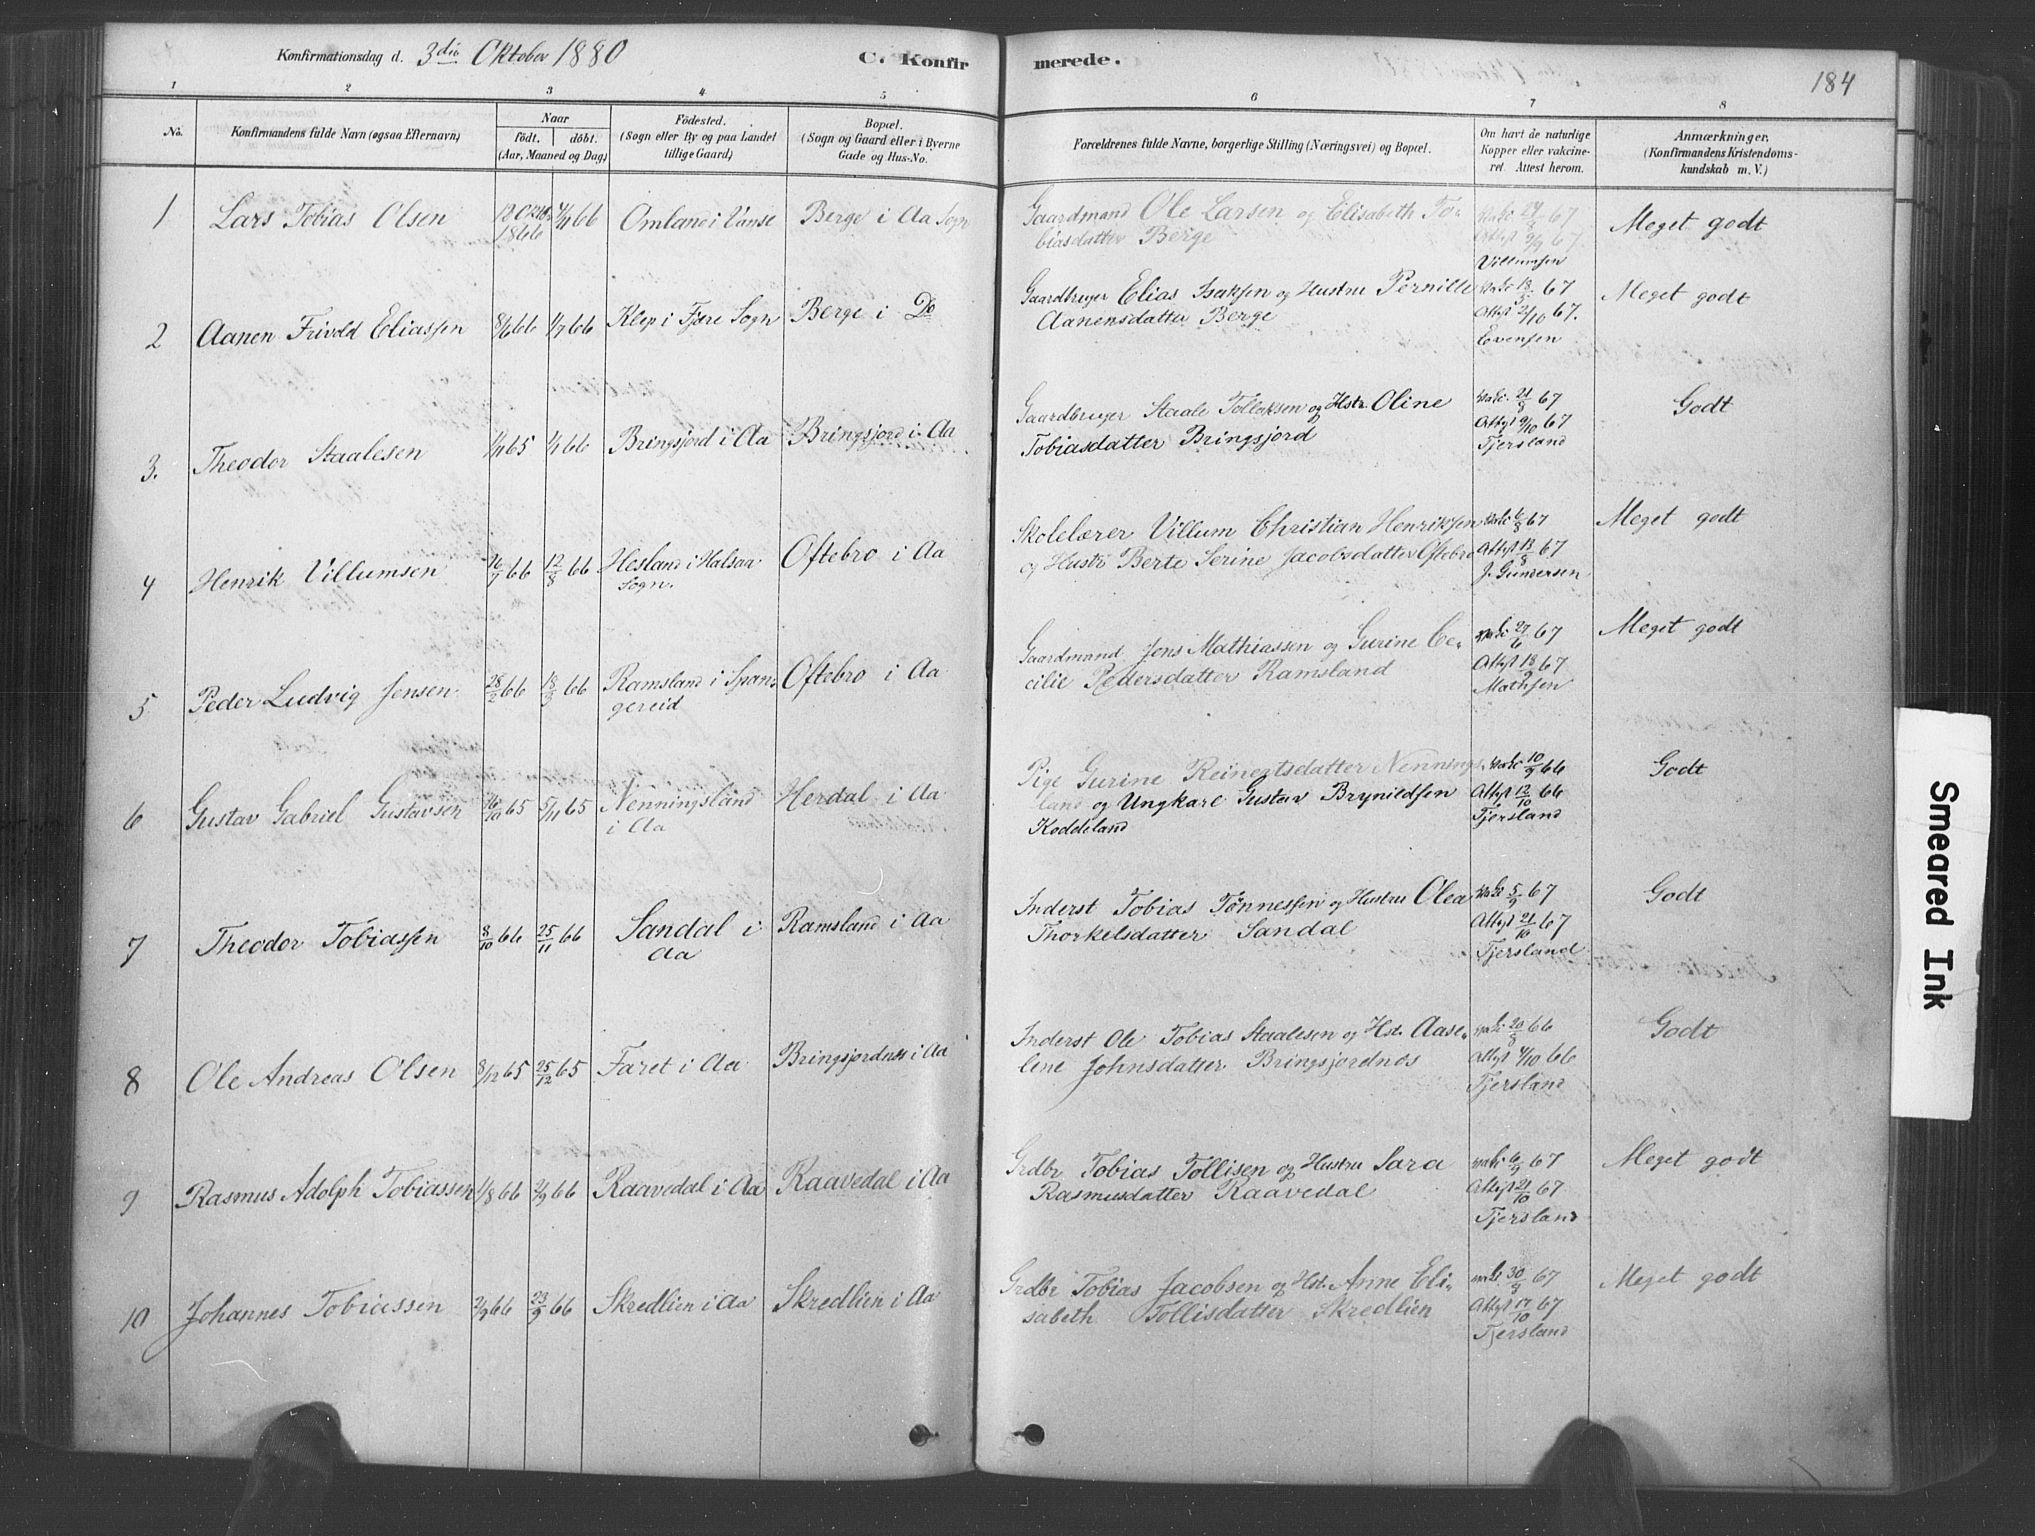 Konfirmationsdag d. 3die Oktober 1880
C. Konfirmerede.
184
1 2 3 4 5 6 7 8
No.
Konfirmandens fulde Navn (ogsaa Efternavn)
Naar
födt. döbt.
(Aar, Maaned og Dag)
Födested.
(Sogn eller By og paa Landet
tillige Gaard)
Bopæl.
(Sogn og Gaard eller i Byerne
Gade og Hus-No.
Forældrenes fulde Navne, borgerlige Stilling (Næringsvei) og Bopæl.
Om havt de naturlige
Kopper eller vakcine-
ret. Attest herom.
Anmærkninger.
(Konfirmandens Kristendoms-
kundskab m. V.)
1 Lars Tobias Olsen 12 Oktbr 1866 4/11 66 Omland i Vanse Berge i Aa Sogn
Gaardmand Ole Larsen og Elisabeth To-
biasdatter Berge
Villumsen
Meget godt
2 Aanen Frivold Eliassen 8/6 66 1/7 66 Klep i Fjære Sogn Berge i Do
Gaardbruger Elias Isaksen og Hustru Pernille
Aanensdatter Berge
Vakc 18/5 67
Attest 21/10 67.
Evensen
Meget godt
3. Theodor Staalesen 1/11 65 1/1 66 Bringsjord i Aa Bringsjord i Aa
Gaardbruger Staale Tollaksen og Hstr. Oline
Tobiasdatter Bringsjord
Vakc. 21/8 67
Attest 9/10 67
Tjersland
Godt
4 Henrik Villumsen 16/7 66 12/8 66 Hesland i Halsaa
Sogn.
Oftebro i Aa
Skolelærer Villum Christian Henriksen
og Hustr Berte Serine Jacobsdatter Oftebro
Vakc 6/8 67
Attest 13/8 67
J. Gundersen
Meget godt
5 Peder Ludvig Jensen 28/2 66 18/3 66 Ramsland i Span-
gereid
Oftebro i Aa
Gaardmand Jens Mathiassen og Gurine Ce-
cilie Pedersdatter Ramsland
Vakc 27/6 67
Attest 18/9 67
Mathsen
Meget godt
6 Gustav Gabriel Gustavsen 16/10 65 5/11 65 Nenningsland
i Aa
Herdal i Aa
Pige Gurine Reinertsdatter Nennings-
land og Ungkarl Gustav Brynildsen
Koddeland
Vakc 10/9 66
Attest 12/10 66
Tjersland
Godt
7 Theodor Tobiassen 8/10 66 25/11 66 Sandal i
Aa
Ramsland i Aa
Inderst Tobias Tönnessen og Hustru Olea
Thorkelsdatter Sandal
Vakc 5/9 67
Attest 21/10 67
Tjersland
Godt
8 Ole Andreas Olsen 8/12 65 25/12 65 Faret i Aa Bringsjordnes i Aa
Inderst Ole Tobias Staalesen og Hst. Aase-
lene Johnsdatter Bringsjordnes
Vakc 20/8 66
Attest 4/10 66
Tjersland
Godt
9 Rasmus Adolph Tobiassen 1/8 66 2/9 66 Raavedal i Aa Raavedal i Aa
Grdbr Tobias Tollisen og Hustru Sara
Rasmusdatter Raavedal
Vakc 6/9 67
Attest 21/10 67
Tjersland
Meget godt
10 Johannes Tobiassen 2/9 66 23/9 66 Skredlien i Aa Skredlien i Aa
Grdbr Tobias Jacobsen og Hst. Anne Eli-
sabeth Tollisdatter Skredlien
Vakc 30/8 67
Attest 17/10 67
Tjersland
Meget godt
Smeared Ink